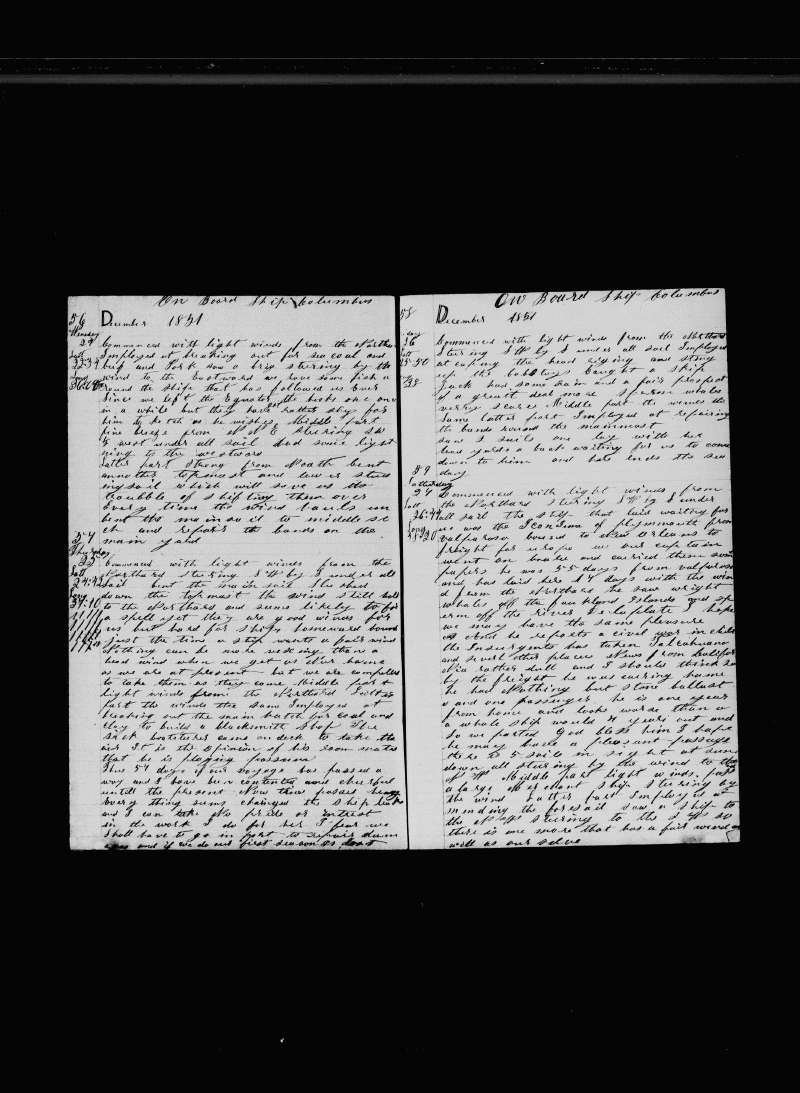 On Board Ship Columbus
56
December 1851
24
Commenced with light winds from the Northard
Imployed at breaking out for sea coal and
beef and Pork saw a brig steering by the
wind to the Eastward we have some fish a
round the ship that has followed us Ever
Since we left the Equator he hooks one on
in a while but they have got rather shy for
him to ketch as he wishes Middle part
fine breeze from N E Steering SW
& west under all sail had some light
ning to the westward
latter part Strong from North bent
another topmast and lower stud
ingsail which will save us the
troubble of shifting them over
Every time the wind hauls un
bent the mainsail to middle st
ch and repair the bands on the
main yard
57
Thursday
25
Latt
34:43
Commenced with light winds from the
Northard Steering SW by S under all
sail bent the main sail
down the topmast the wind still holds
to the Northard and seems likely to for
a spell yet they are good winds for
us but hard for ships homeward bound
just the time a ship wants a fair wind
Nothing can be more vexing than a
head wind when we get as Near home
as we are at present but we are compelled
to take them as they come Middle part
light winds from the Northard Latter
part the winds the same Imployed at
breaking out the main hatch for coal and
clay to build a blacksmith Shop The
sick boatsteerer came on deck to take the
air It is the opinion of his Room mates
that he is playing possum
Thus 57 days of our voyage has passed a
way and I have been contented and cheerful
untill the present Now time passes heavy
Every thing seems changed the ship leaks
and I can take No pride or intrest
in the work I do for her I fear we
Shall have to go in port to repair dam
ages and if we do our first season is lost
On Board Ship Columbus
58
December 1851
26
Latt
36
Commenced with light winds from the Northard
Stering SW by S under all sail Imployed
at caping the head riging and stay
up the bobstays Caught a skip
jack had some rain and a fair prospect
of a greatt deal more Sperm whales
verry scarce Middle part the winds the
same latter part Imployed at repairing
the bands round the mainmast
saw 3 sails one lay with her
head yards a back waiting for us to come
down to him and thus ends the sea
day
59
Saturday
27
Commenced with light winds from
the Northard steering SW by S under
all sail The ship that laid waiting for
us was the of plymmouth from
valparaso bound to New Orleans to
freight for urope our captain
went on board and carried them some
papers he was 55 days from valparaso
and has laid here 14 days with the wind
d from the Northard he saw wright
whales off the Faukland Islands and sp
erm off the River De-laplate I hope
we may have the same pleasure
as could he reports a civil war in chile
the Insurgents has taken Talcahuano
and severl other places News from Califor
Nia rather dull and I should think so
by the freight he was carring home
he had Nothing but stone ballast
and one passenger he is one year
from home and looks worse than a
a whale ship would 4 years out and
So we parted God bless him I hope
he may have a pleasent passage
there is 5 sail in sight at sun
down all stearing by the wind to the
of W Middle part light winds pass
a large Merchant ship steering by
the wind Latter part Imployed at
mending the foresail saw a ship to
the NW steering to the SW so
there is one more that has a fair wind as
well as our selves